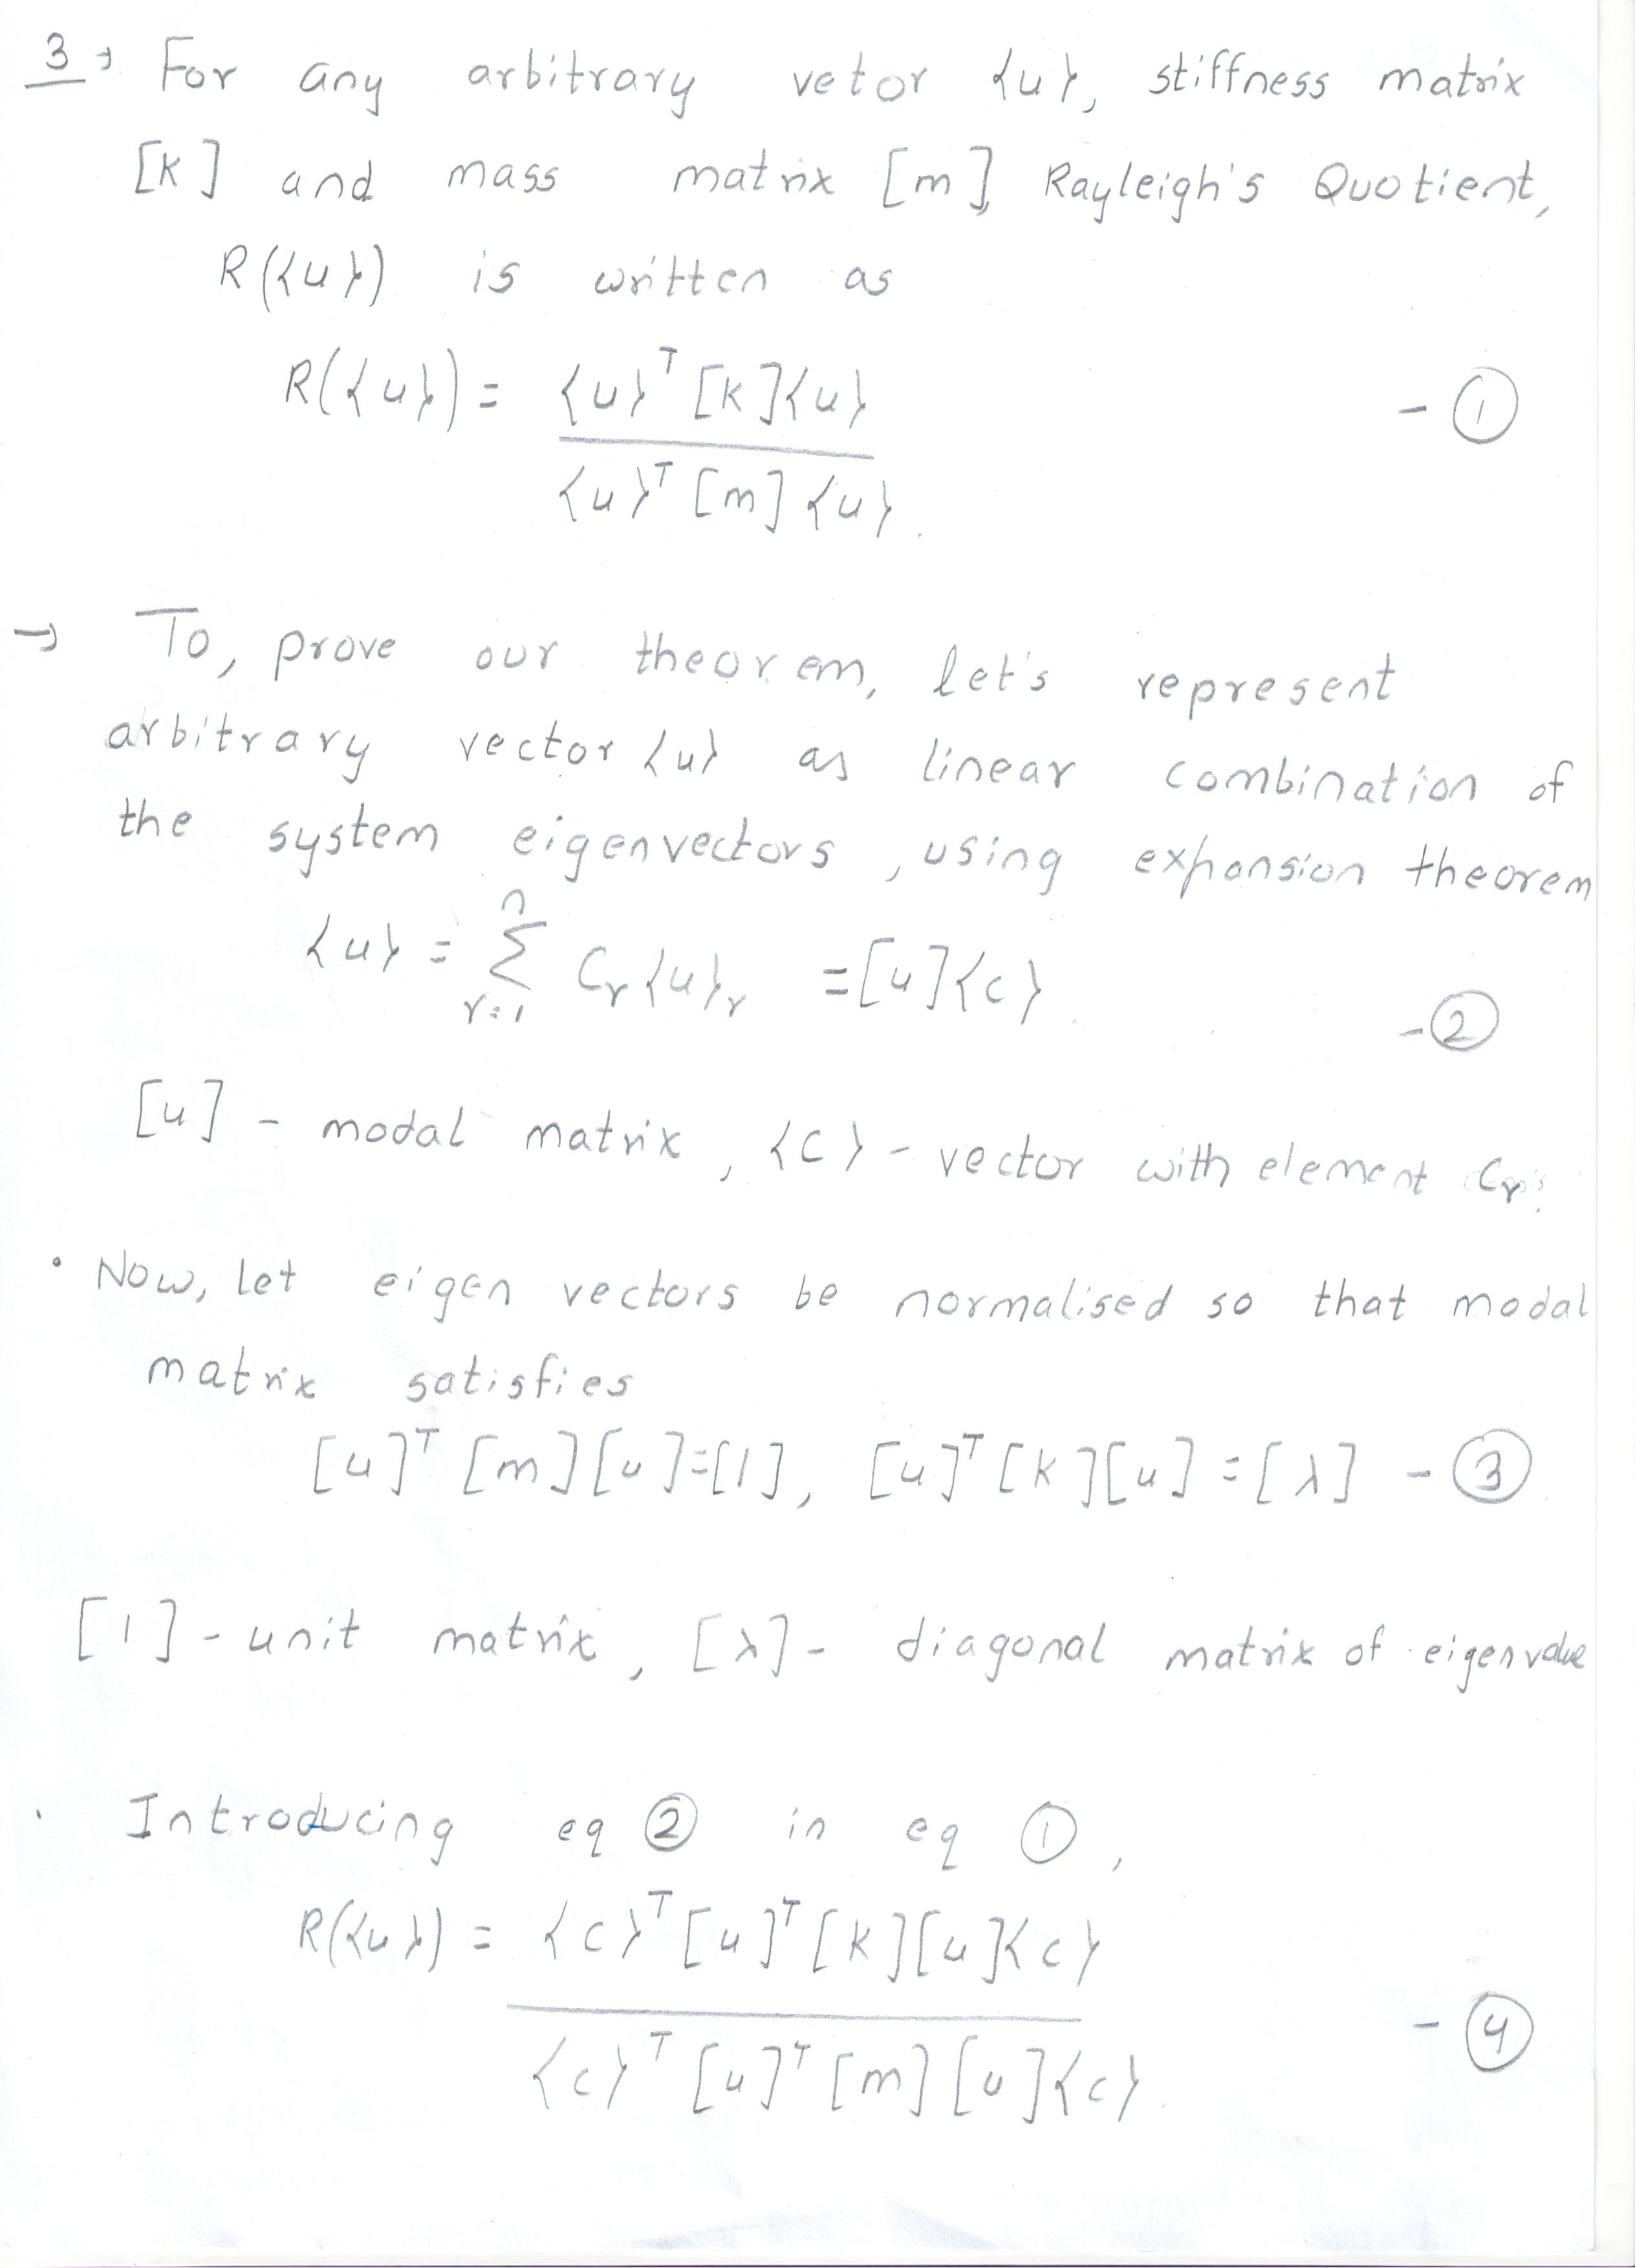 3→ For any arbitrary vetor {u}, stiffness matrix
[k] and mass matrix [m], Rayleigh's Quotient,
R({u}) is written as
R({u}) = {u}ᵀ [k]{u} - ①
{u}ᵀ [m] {u}.
→ To, prove our theorem, let's represent
arbitrary vector {u} as linear combination of
the system eigenvectors, using expansion theorem
n
{u} = Σ Cᵣ{u}ᵣ = [u]{c}. - ②
r=1
[u] - modal matrix, {c} - vector with element Cᵣ's.
• Now, let eigen vectors be normalised so that modal
matrix satisfies
[u]ᵀ [m][u]=[1], [u]ᵀ[k][u] = [λ] - ③
[1] - unit matrix, [λ] - diagonal matrix of eigenvalue
. Introducing eq ② in eq ①,
R({u}) = {c}ᵀ[u]ᵀ[k][u]{c} - ④
{c}ᵀ [u]ᵀ [m] [u]{c}.